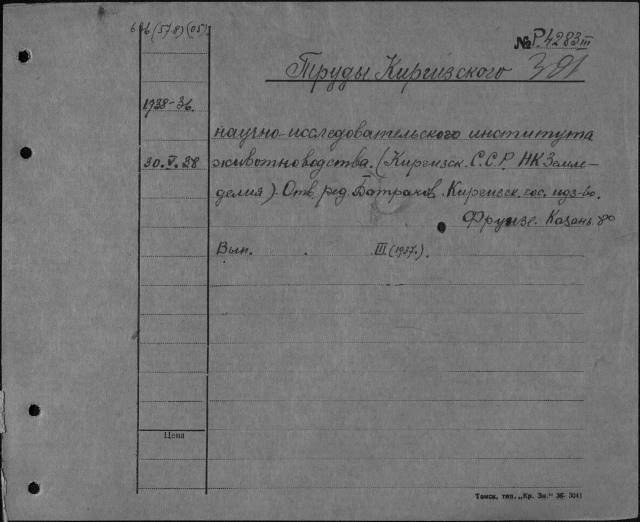 636(578)(05)
№ Р.4283III
Труды Киргизского 391
1938-36.
научно-исследовательского института
30.V.38 животноводства. (Киргизск. С.С.Р. НКЗемле-
делия). Отв. ред. Батраков. Киргизск. гос. изд-во.
Фрунзе. Казань. 8°
Вып. III (1937).
Цена
Томск, тип. „Кр. Зн." 36- 3041